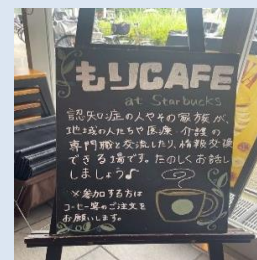 もりCAFE
at Starbucks
認知症の人やその家族が、
地域の人たちや医療・介護の
専門職と交流したり、情報交換
できる場です。たのしくお話し
しましょう♪
※参加する方は
コーヒー等のご注文を
お願いします。